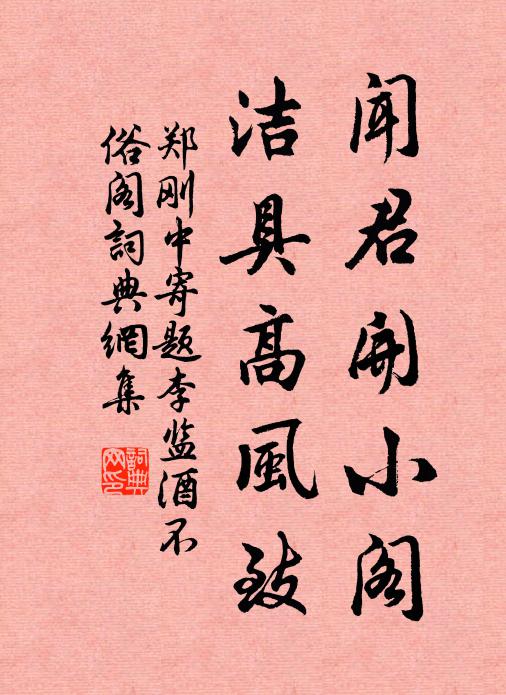 闻君開小阁
洁具高風致
郑刚中寄题李监酒不
俗阁詞典網集
詞典网印